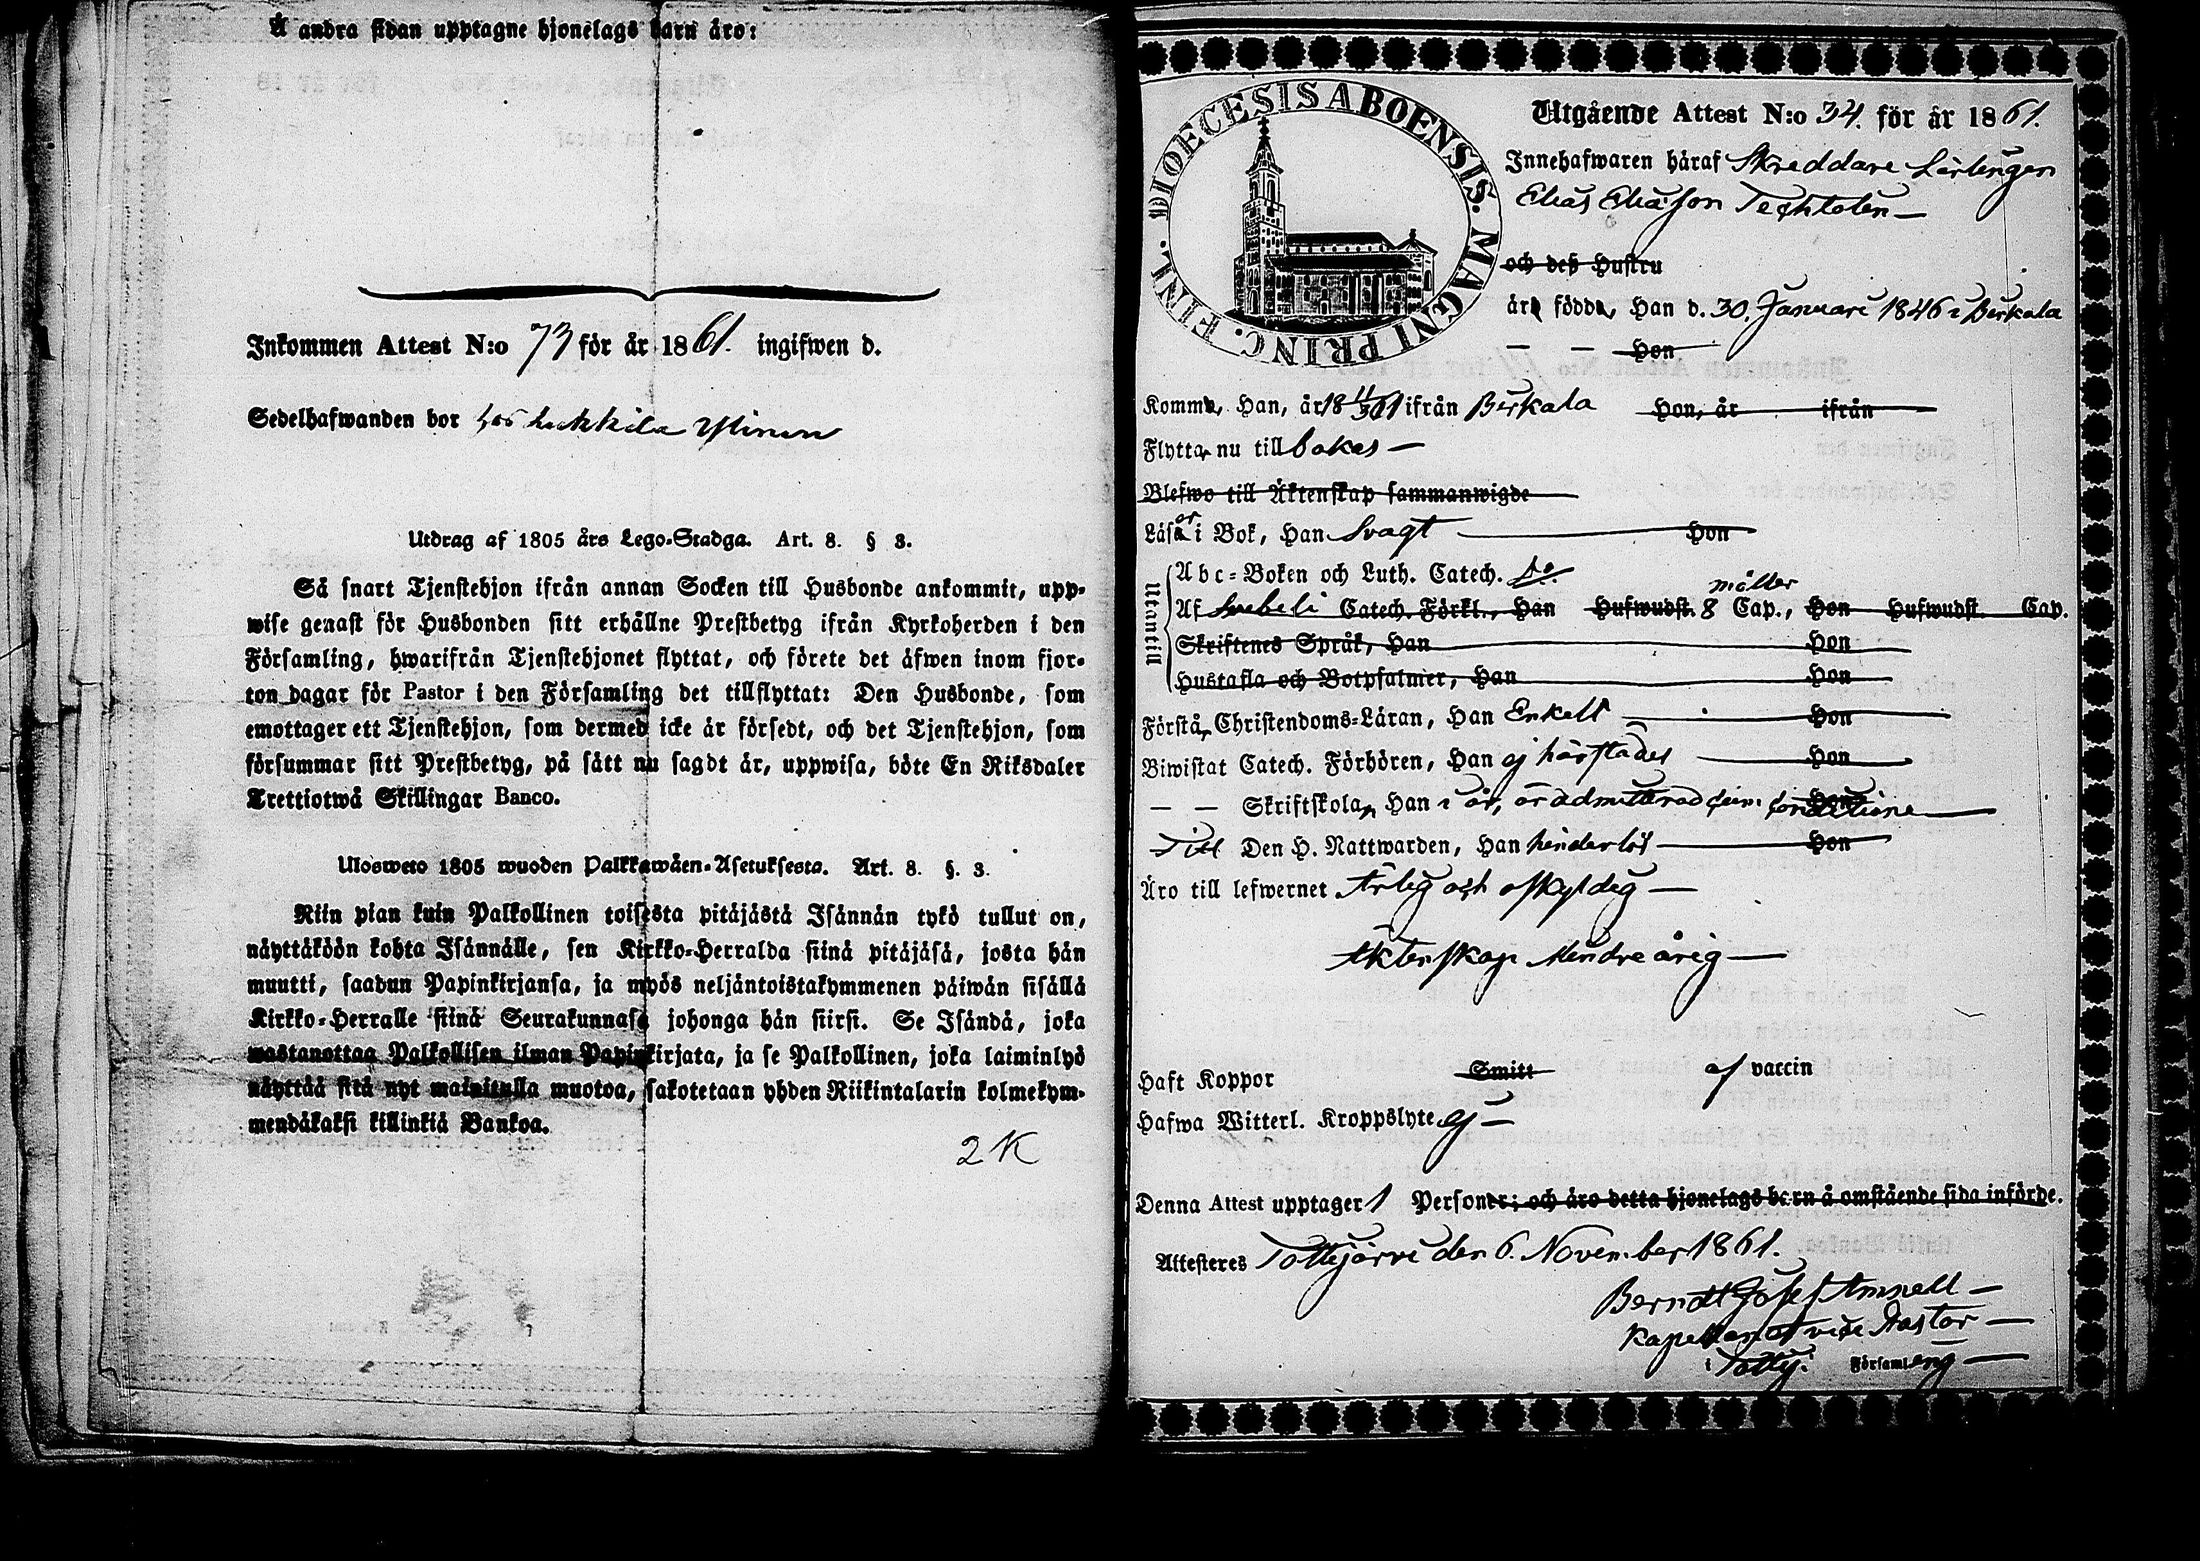 Å andra sidan upptagne hjonelags barn äro:
Inkommen Attest N:o 73 för år 1861. ingifwen d.
Sedelhafwanden bor hos
Utdrag af 1805 års Lego-Stadga. Art. 8. § 3.
Så snart Tjenstehjon ifrån annan Socken till Husbonde ankommit, upp-
wise genast för Husbonden sitt erhållne Prestbetyg ifrån Kyrkoherden i den
Församling, hwarifrån Tjenstehjonet flyttat, och förete det äfwen inom fjor-
ton dagar för Pastor i den Församling det tillflyttat: Den Husbonde, som
emottager ett Tjenstehjon, som dermed icke är försedt, och det Tjenstehjon, som
försummar sitt Prestbetyg, på sätt nu sagdt är, uppwisa, böte En Riksdaler
Trettiotwå Skillingar Banco.
Ulosweto 1805 wuoden Palkkawäen-Asetuksesta. Art. 8. §. 3.
Niin pian kuin Palkollinen toisesta pitäjästä Isännän tykö tullut on,
näyttäköön kohta Isännälle, sen Kirkko-Herralda siinä pitäjäsä, josta hän
muutti, saadun Papinkirjansa, ja myös neljäntoistakymmenen päiwän sisällä
Kirkko-Herralle siinä Seurakunnasa johonga hän siirsi. Se Isändä, joka
wastanottaa Palkollisen ilman Papinkirjata, ja se Palkollinen, joka laiminlyö
näyttää sitä nyt mainitulla muotoa, sakotetaan yhden Riikintalarin kolmekym-
mendäkaksi killinkiä Bankoa.
2 K
DIOECESIS ABOENSIS. MAGNI PRINC. FINL.
Utgående Attest N:o 34. för år 1861.
Innehafwaren häraf Skreddare Lärlingen
Elias Eliasson
och deß Hustru
äro födde, Han d. 30. Januari 1846 i Birkala
— — Hon
Komme, Han, år 18 11/3 61 ifrån Birkala Hon, år ifrån
Flytta nu till
Blefwo till Äktenskap sammanwigde
Läser i Bok, Han Svagt Hon
Utantill
Abc-Boken och Luth. Catech. do.
Af Svebeli Catech. Förkl., Han Hufwudst. 8 Cap., Hon Hufwudst. Cap.
Skriftenes Språk, Han Hon
Hustafla och Botpsalmer, Han Hon
Förstå, Christendoms-Läran, Han Enkelt Hon
Biwistat Catech. Förhören, Han ej härstädes Hon
— — Skriftskola, Han i år, är admitterad cum conditione Hon
Till Den H. Nattwarden, Han hinderlös Hon
Äro till lefwernet Ärlig och oskyldig —
Äktenskap Mindreårig —
Haft Koppor Smitt af vaccin
Hafwa Witterl. Kroppslyte ej —
Denna Attest upptager 1 Personer; och äro detta hjonelags barn å omstående sida införde.
Attesteres Tottijärvi den 6. November 1861.
Berndt Josef Amnell —
Kapellan o vice Pastor —
i Tottij. Församling —